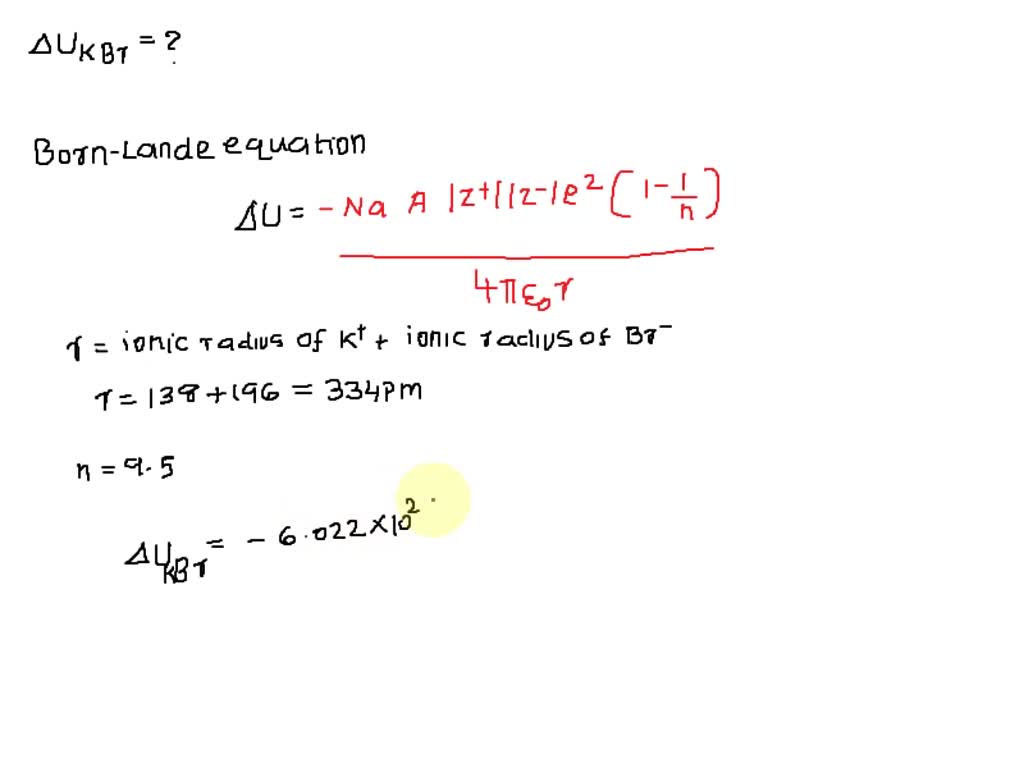 ΔU KBr = ?
Born-Lande equation
ΔU = - Na A |z+||z-|e² (1 - 1/n)
4πε₀r
r = ionic radius of K⁺ + ionic radius of Br⁻
r = 138 + 196 = 334pm
n = 9.5
ΔU KBr = - 6.022 × 10²